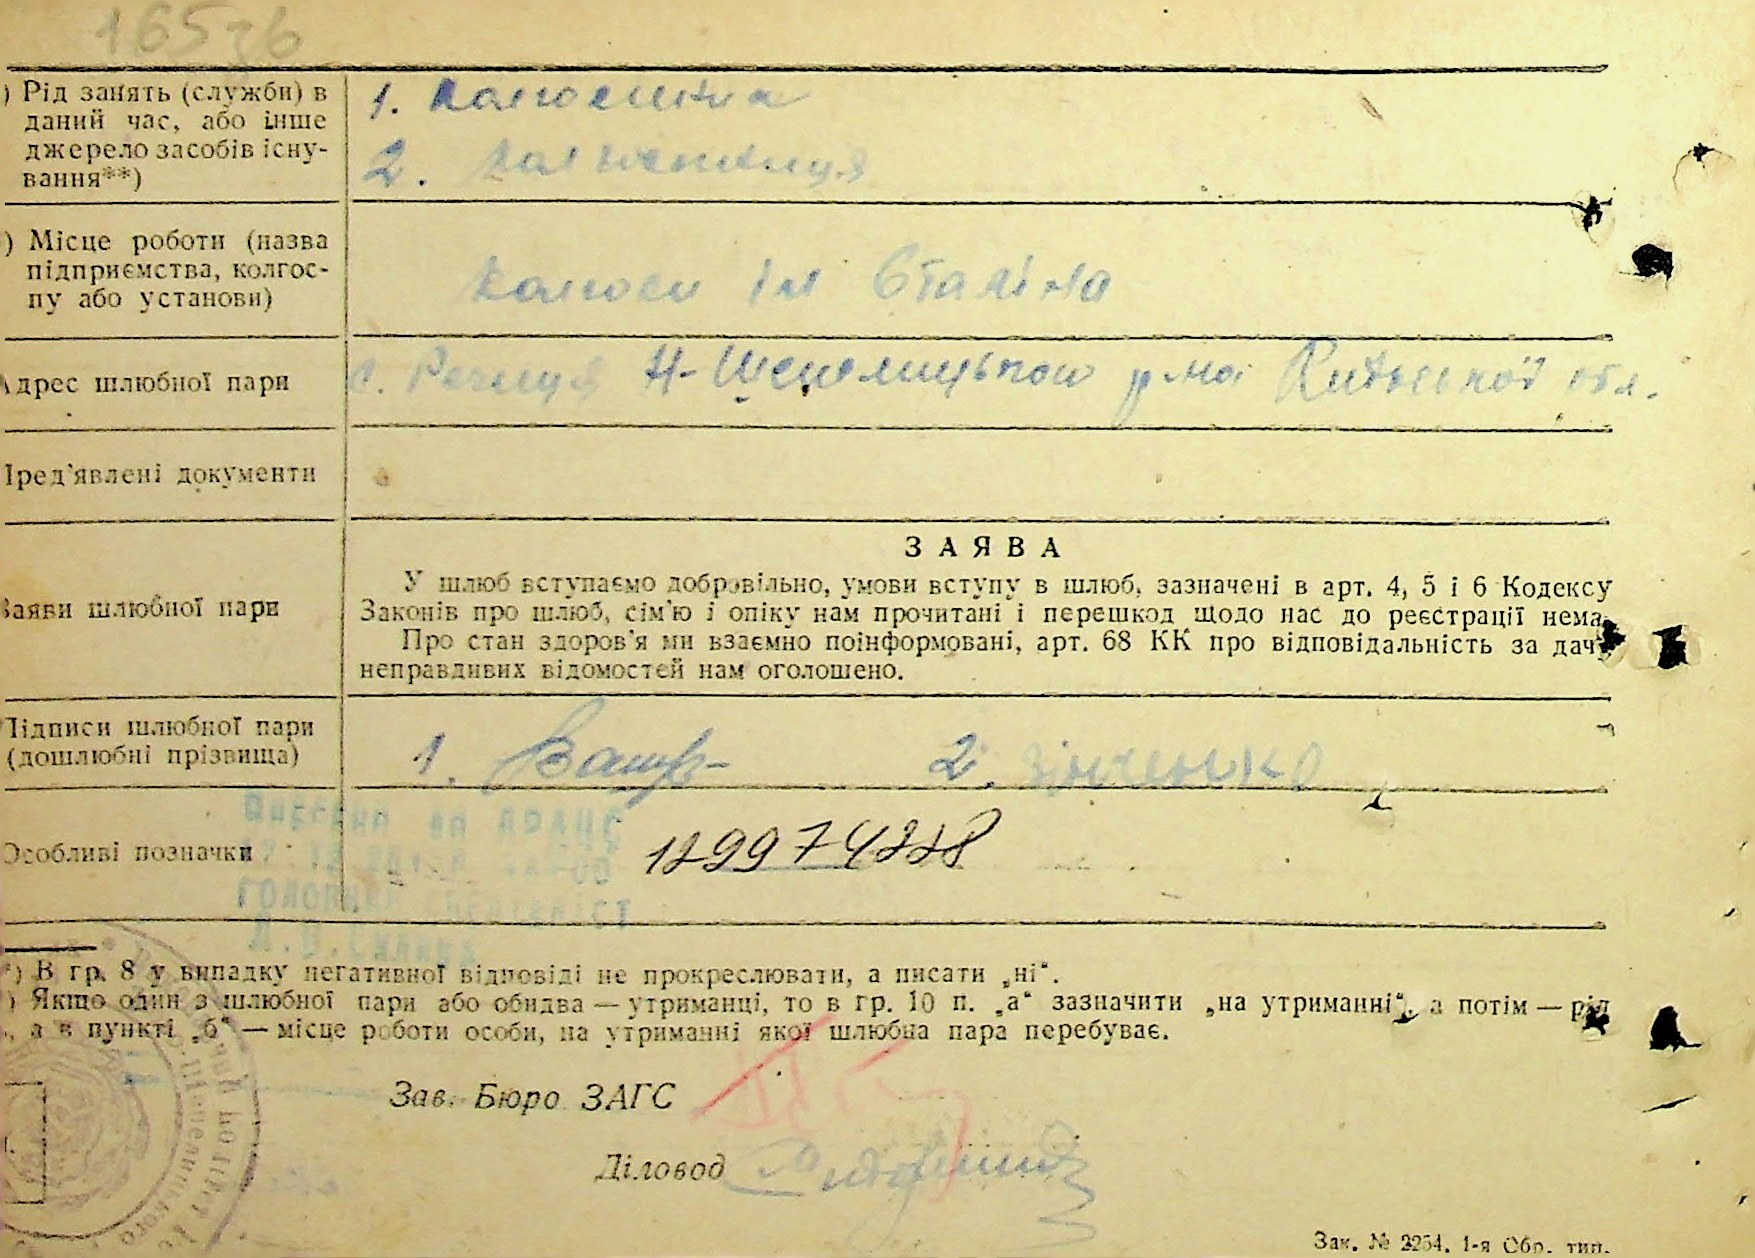 16576
) Рід занять (служби) в
даний час, або інше
джерело засобів існу-
вання**)
1. Колгоспник
2. Колгоспниця
) Місце роботи (назва
підприємства, колгос-
пу або установи)
Колгосп ім Сталіна
Адрес шлюбної пари
с. Речиця Н-Шепелицького р-на Київської обл.
Пред'явлені документи
Заяви шлюбної пари
ЗАЯВА
У шлюб вступаємо добровільно, умови вступу в шлюб, зазначені в арт. 4, 5 і 6 Кодексу
Законів про шлюб, сім'ю і опіку нам прочитані і перешкод щодо нас до реєстрації нема.
Про стан здоров'я ми взаємно поінформовані, арт. 68 КК про відповідальність за дачу
неправдивих відомостей нам оголошено.
Підписи шлюбної пари
(дошлюбні прізвища)
1. 2. Зінченко
Внесено до ДРАЦС
Головний спеціаліст
Особливі позначки
129974228
*) В гр. 8 у випадку негативної відповіді не прокреслювати, а писати „ні“.
) Якщо один з шлюбної пари або обидва — утриманці, то в гр. 10 п. „а“ зазначити „на утриманні“, а потім — рід
, а в пункті „б“ — місце роботи особи, на утриманні якої шлюбна пара перебуває.
Зав. Бюро ЗАГС
Діловод
Зак. № 2254. 1-я Обр. тип.